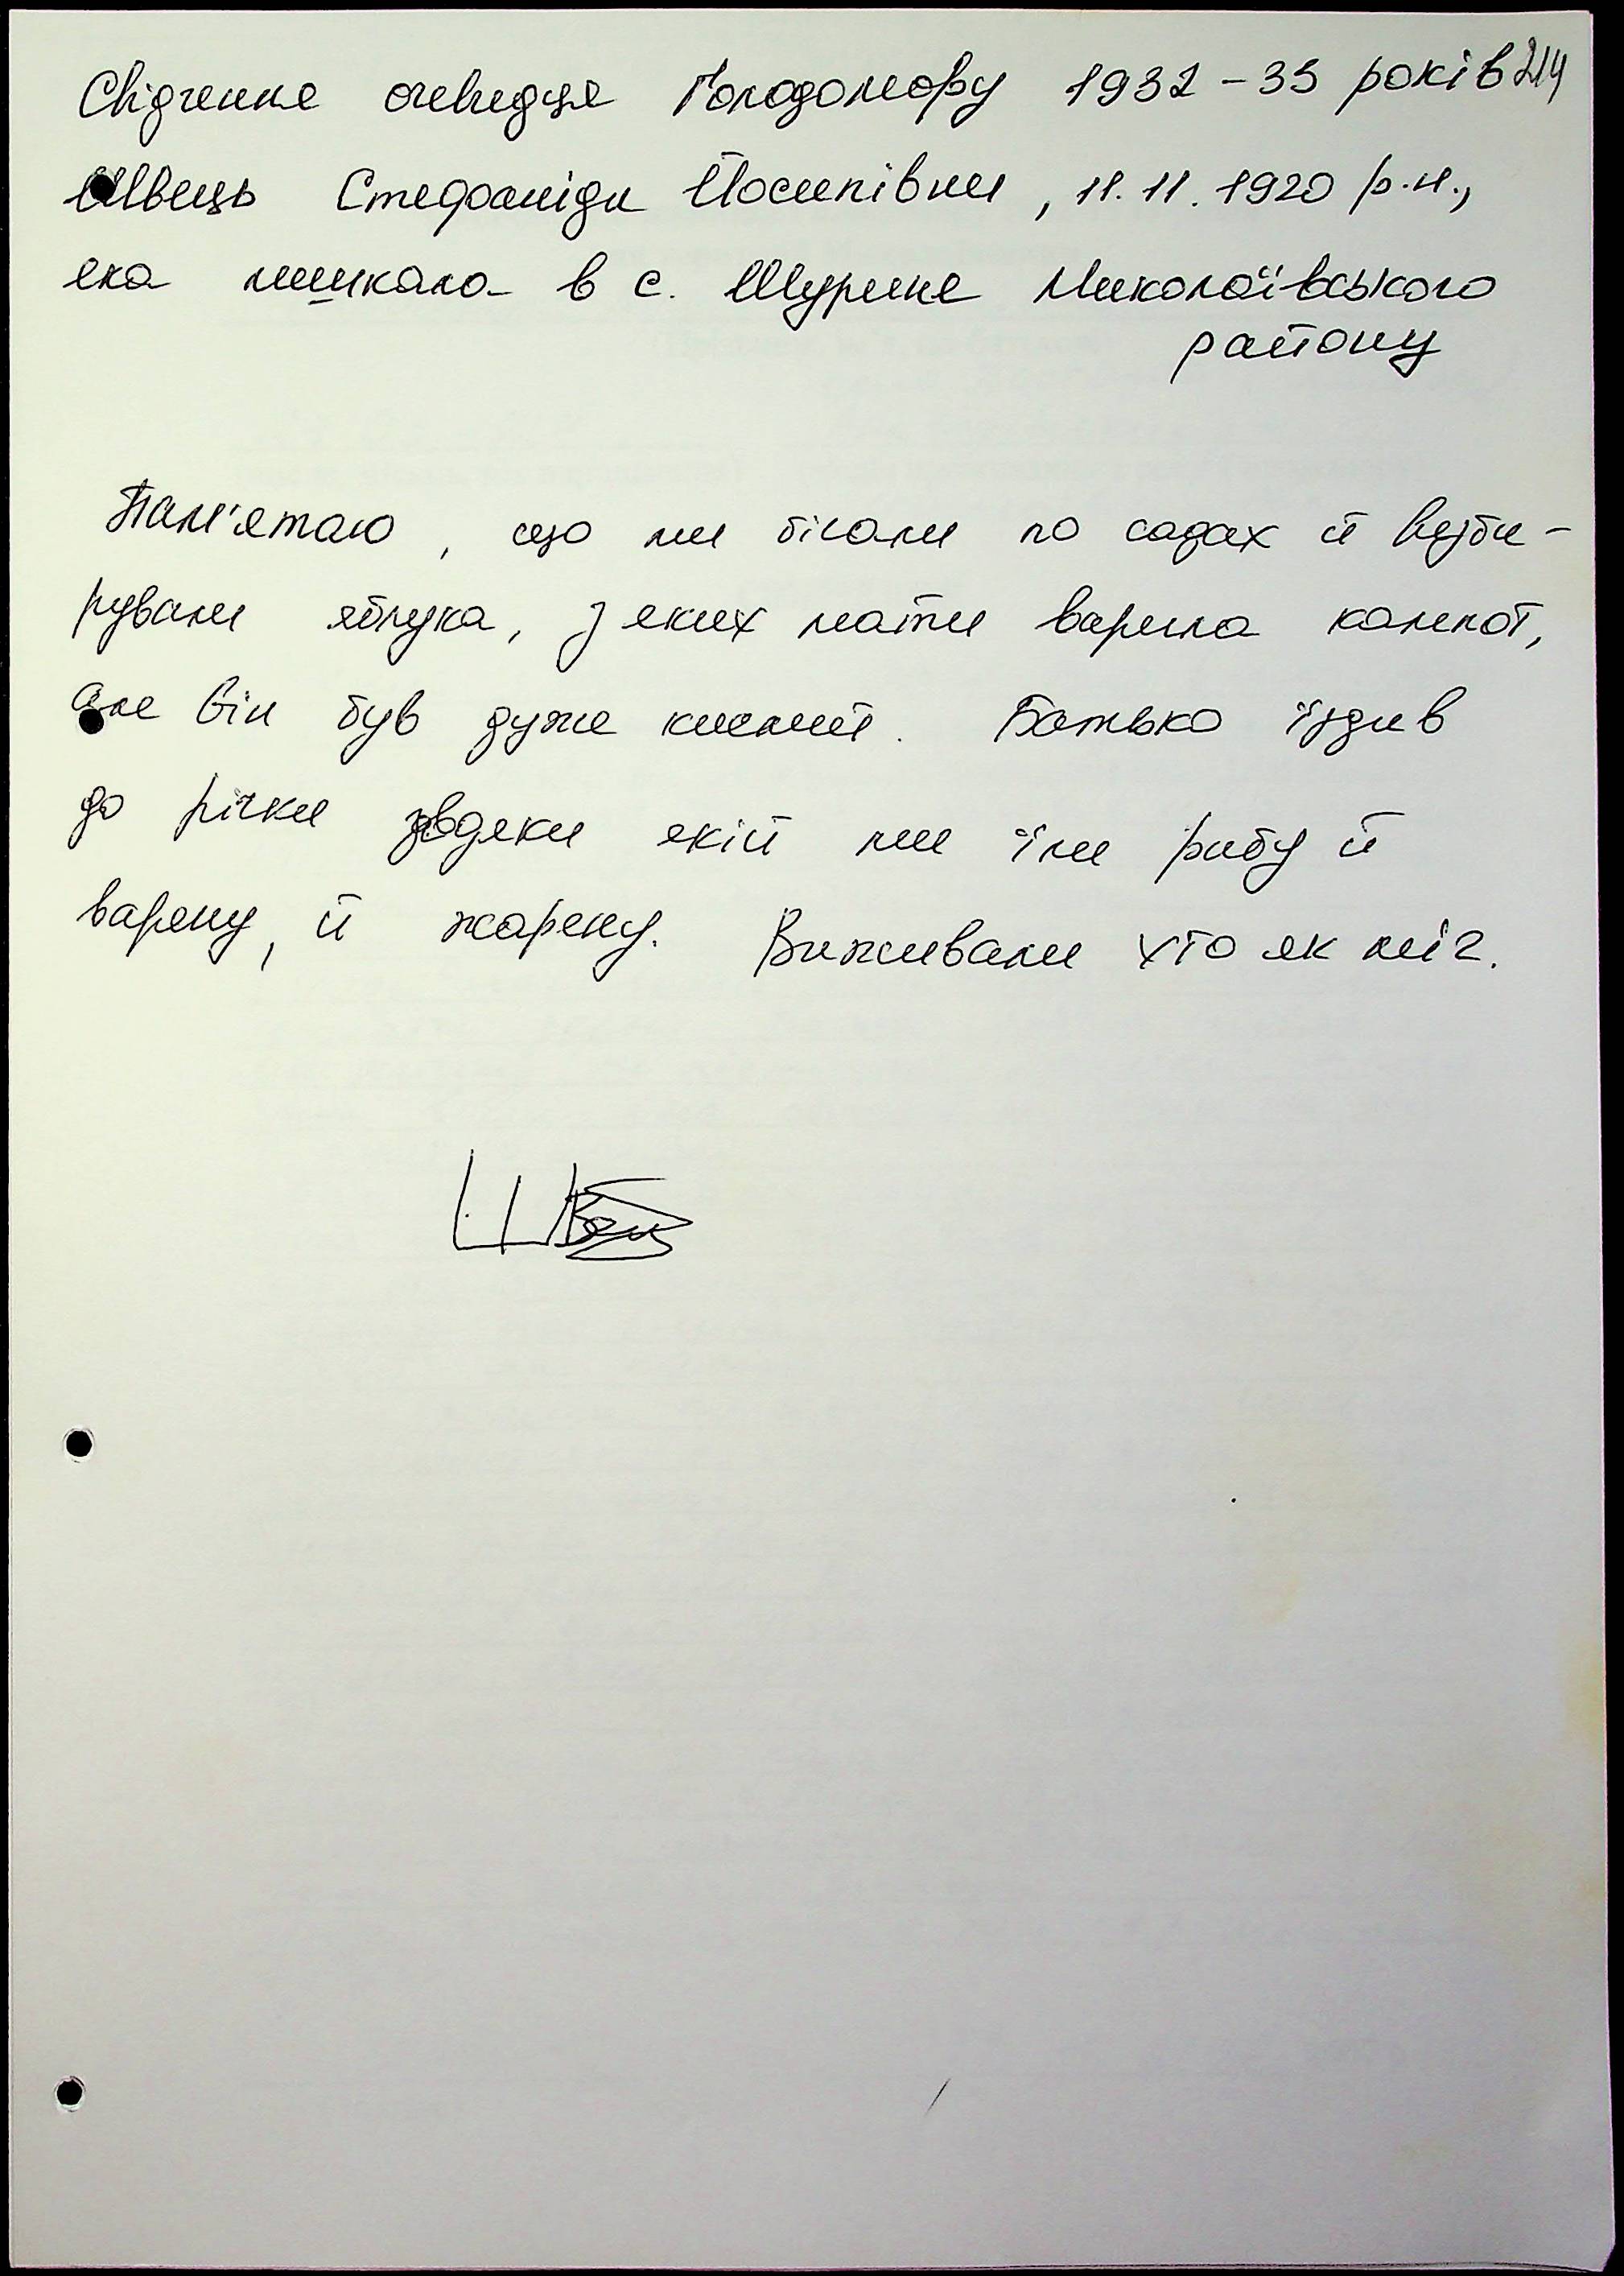 Свідчення очевидця Голодомору 1932-33 років 214
Швець Стефаніди Йосипівни, 11.11.1920 р.н.,
яка мешкала в с. Шурине Миколаївського
району
Пам'ятаю, що ми бігали по садах й
рували яблука, з яких мати варила компот,
але він був дуже кислий. Батько їздив
до річки завдяки якій ми їли рибу й
варену, й жарену. Виживали хто як міг.
Швець